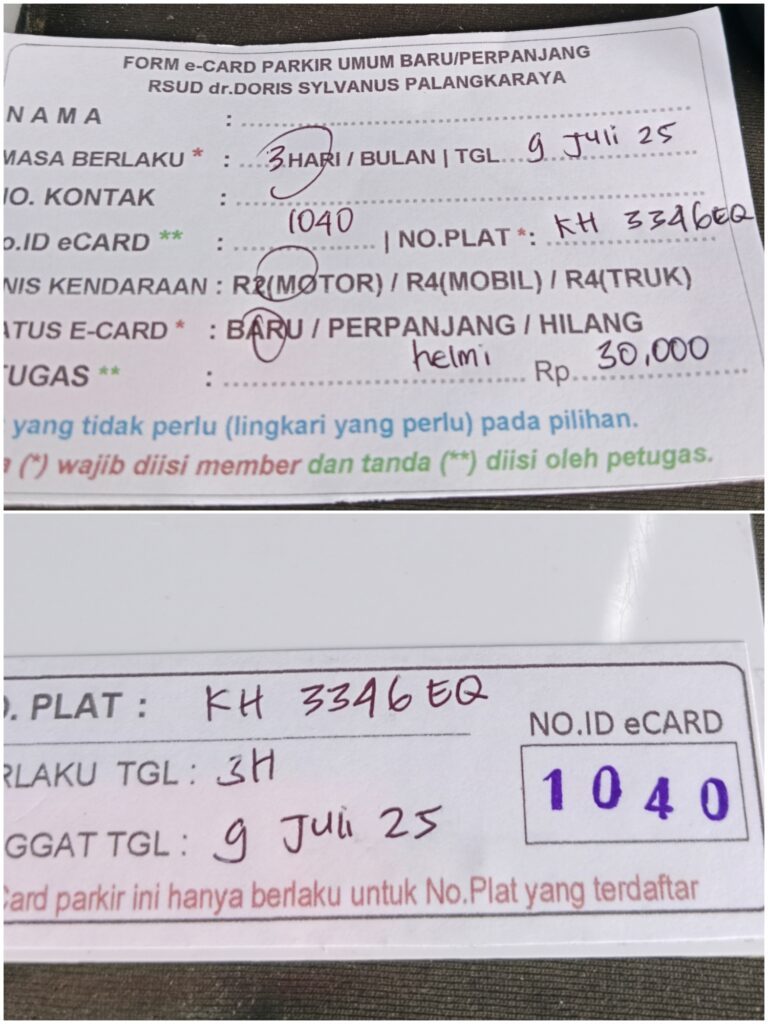 FORM e-CARD PARKIR UMUM BARU/PERPANJANG
RSUD dr.DORIS SYLVANUS PALANGKARAYA
NAMA :
MASA BERLAKU * : 3 HARI / BULAN | TGL. 9 Juli 25
NO. KONTAK :
No.ID eCARD ** : 1040 | NO.PLAT *: KH 3346EQ
NIS KENDARAAN : R2(MOTOR) / R4(MOBIL) / R4(TRUK)
ATUS E-CARD * : BARU / PERPANJANG / HILANG
TUGAS ** : helmi Rp. 30,000
yang tidak perlu (lingkari yang perlu) pada pilihan.
a (*) wajib diisi member dan tanda (**) diisi oleh petugas.
O. PLAT : KH 3346 EQ
NO.ID eCARD
RLAKU TGL : 3H
1040
GGAT TGL : 9 Juli 25
Card parkir ini hanya berlaku untuk No.Plat yang terdaftar